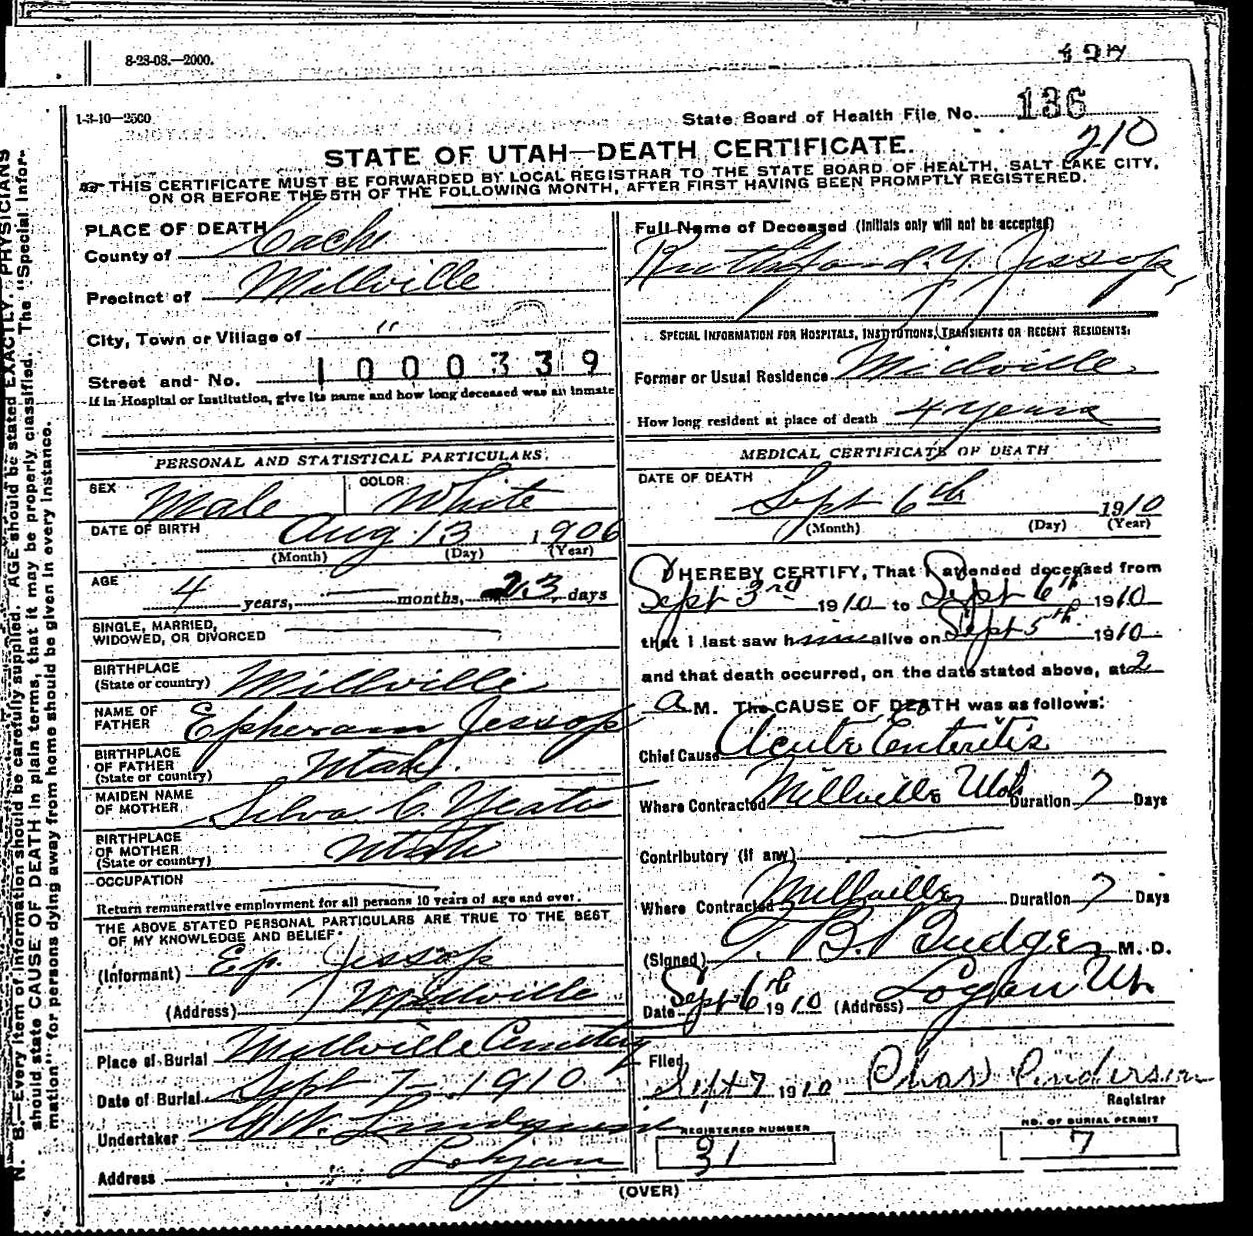 8-23-08.—2000.
1-3-10—2500
State Board of Health File No. 136
210
STATE OF UTAH—DEATH CERTIFICATE.
THIS CERTIFICATE MUST BE FORWARDED BY LOCAL REGISTRAR TO THE STATE BOARD OF HEALTH, SALT LAKE CITY,
ON OR BEFORE THE 5TH OF THE FOLLOWING MONTH, AFTER FIRST HAVING BEEN PROMPTLY REGISTERED.
N. B.—Every item of information should be carefully supplied. AGE should be stated EXACTLY. PHYSICIANS
should state CAUSE OF DEATH in plain terms, that it may be properly classified. The "Special Infor-
mation" for persons dying away from home should be given in every instance.
PLACE OF DEATH
County of Cache
Precinct of Millville
City, Town or Village of "
Street and No. 1000339
If in Hospital or Institution, give its name and how long deceased was an inmate
PERSONAL AND STATISTICAL PARTICULARS.
SEX Male COLOR White
DATE OF BIRTH Aug 13 1906
(Month) (Day) (Year)
AGE 4 years, — months, 23 days
SINGLE, MARRIED,
WIDOWED, OR DIVORCED
BIRTHPLACE
(State or country) Millville
NAME OF
FATHER Epheram Jessop
BIRTHPLACE
OF FATHER
(State or country) Utah.
MAIDEN NAME
OF MOTHER Silva C. Yeates
BIRTHPLACE
OF MOTHER
(State or country) Utah
OCCUPATION
Return remunerative employment for all persons 10 years of age and over.
THE ABOVE STATED PERSONAL PARTICULARS ARE TRUE TO THE BEST
OF MY KNOWLEDGE AND BELIEF.
(Informant) Ep. Jessop
(Address) Millville
Place of Burial Millville Cemetery
Date of Burial Sept 7— 1910
Undertaker Lindquist
Address Logan
Full Name of Deceased (Initials only will not be accepted)
Rutherford Y. Jessop
SPECIAL INFORMATION FOR HOSPITALS, INSTITUTIONS, TRANSIENTS OR RECENT RESIDENTS:
Former or Usual Residence Millville
How long resident at place of death 4 years
MEDICAL CERTIFICATE OF DEATH
DATE OF DEATH
Sept 6th 1910
(Month) (Day) (Year)
I HEREBY CERTIFY, That I attended deceased from
Sept 3rd 1910 to Sept 6th 1910
that I last saw him alive on Sept 5th 1910
and that death occurred, on the date stated above, at 2
a M. The CAUSE OF DEATH was as follows:
Chief Cause Acute Enteritis
Where Contracted Millville Utah Duration 7 Days
Contributory (if any)
Where Contracted Millville Duration 7 Days
(Signed) T. B. Budge M. D.
Date Sept 6th 1910 (Address) Logan Ut.
Filed
Sept 7 1910 Chas Anderson
Registrar
REGISTERED NUMBER
31
NO. OF BURIAL PERMIT
7
(OVER)